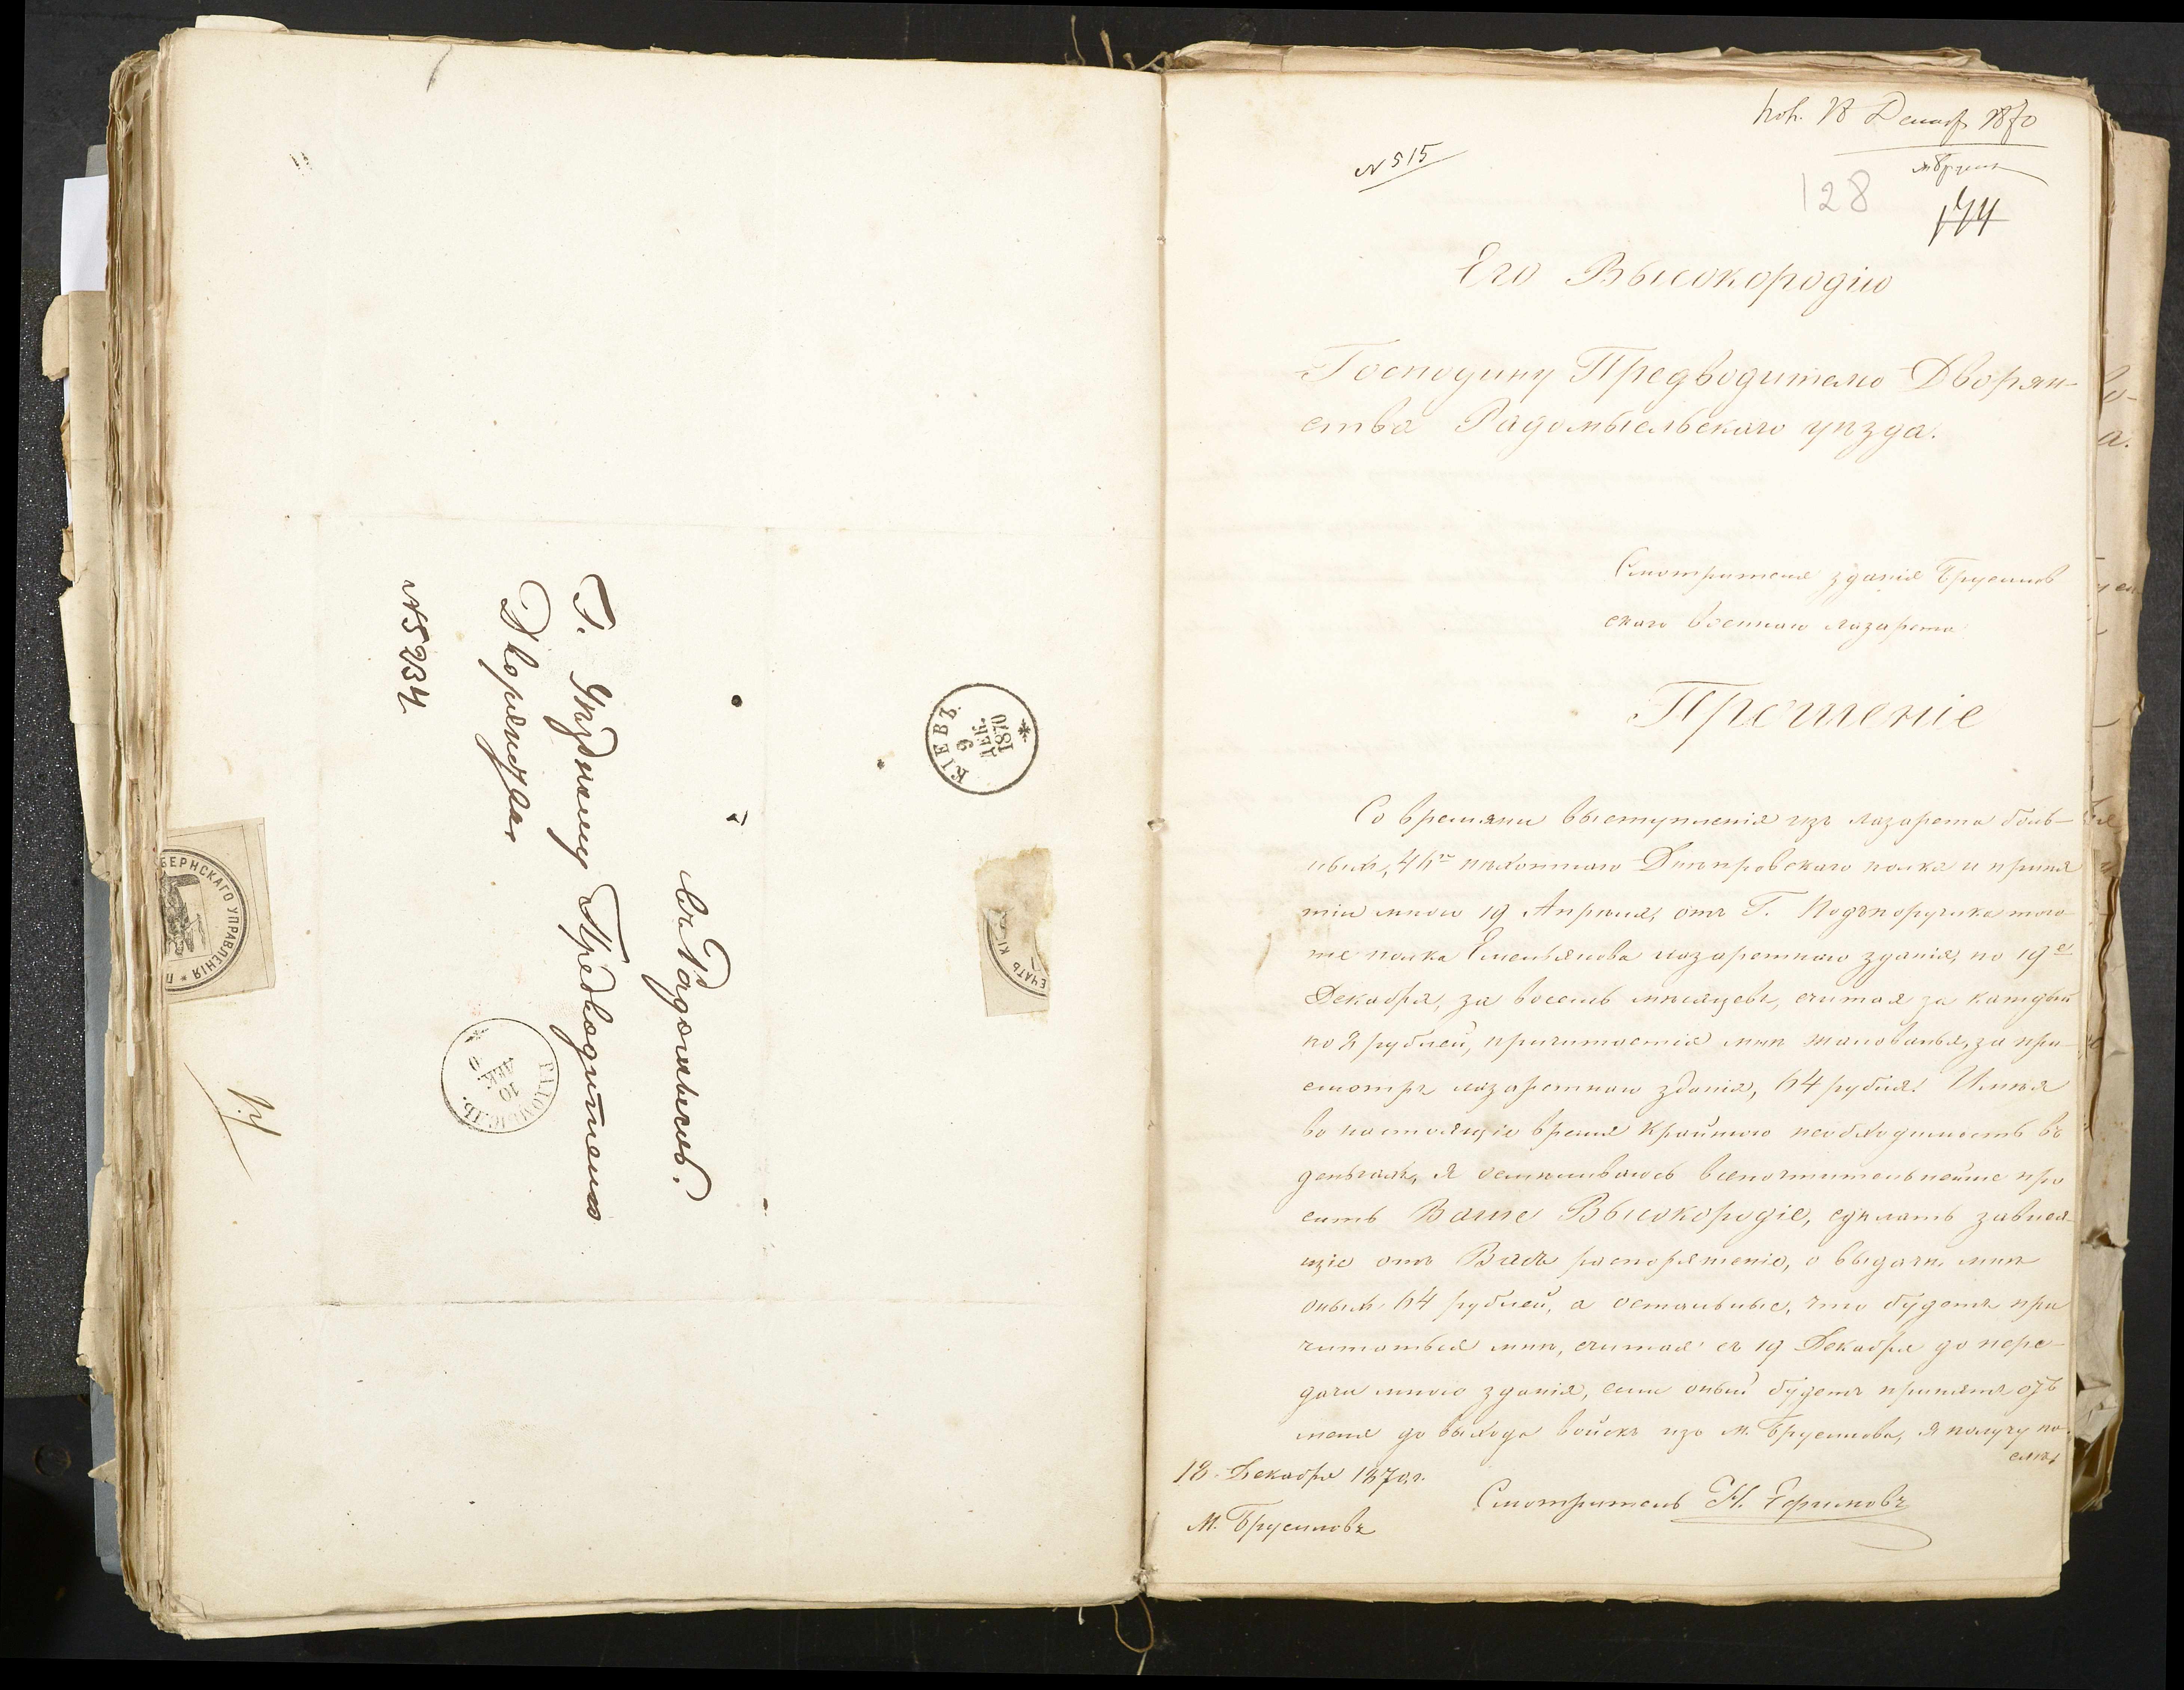 Г. Уѣздному Предводителю
Дворянства
въ Радомыслѣ.
№ 5234
КІЕВЪ.
9
ДЕК.
1870
РАДОМЫСЛЬ.
10
ДЕК.
БЕРНСКАГО УПРАВЛЕНІЯ * П
ЕЧАТЬ КІ
18 Декаб 1870
№ 515
128
Его Высокородію
Господину Предводителю Дворян-
ства Радомысльскаго уѣзда.
Смотрителя зданія Брусилов
скаго военнаго лазарета
Прошеніе
Со времяни выступленія изъ лазарета боль-
ныхъ, пѣхотнаго Днѣпровскаго полка и приня
тія мною 19 Апрѣля, отъ Г. Подъпоручика того-
же полка Емельянова лазаретнаго зданія, по 19е
Декабря, за восемь мѣсяцевъ, считая за каждый
по 8 рублей, причитается мнѣ жалованья, за при-
смотръ лазаретнаго зданія, 64 рубля! Имѣя
во настоящіе время крайнюю необходимость въ
деньгахъ, я осмѣливаюсь всепочтительнейше про
сить Ваше Высокородіе, сдѣлать завися-
щіе отъ Васъ распоряженіе, о выдачи мнѣ
оныхъ 64 рублей, а остальные, что будетъ при
читаться мнѣ, считая съ 19 Декабря до пере-
дачи мною зданія, если оный будетъ принятъ отъ
меня до выхода войскъ изъ м. Брусилова, я получу по-
слѣ.
18 Декабря 1870 г.
Смотритель Н. Ефимовъ
м. Брусиловъ